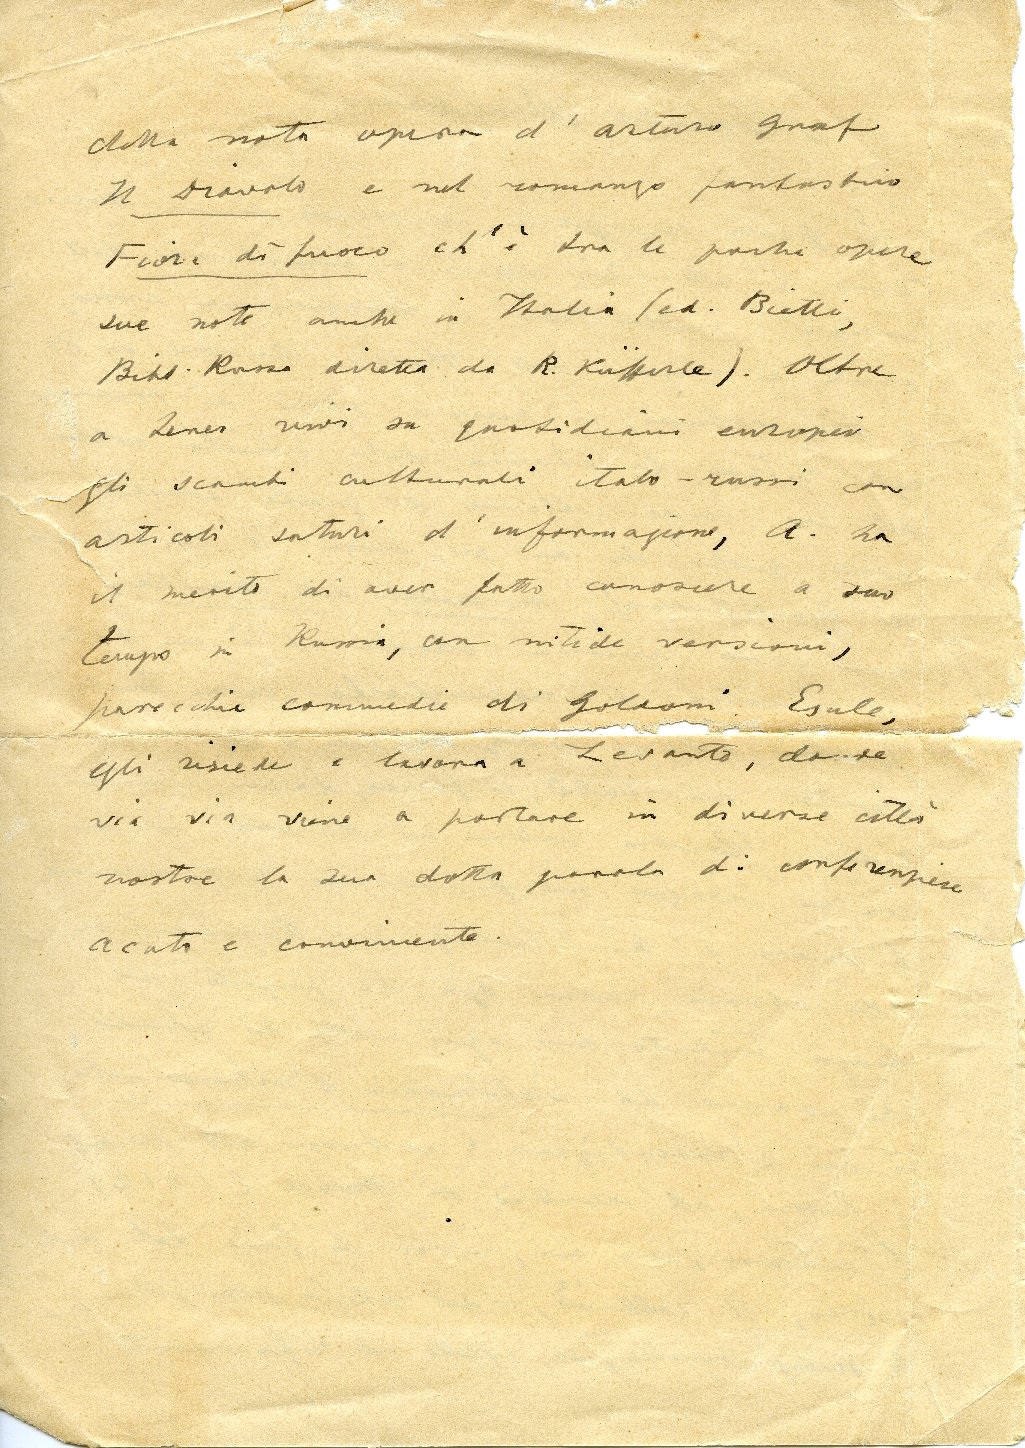 della nota opera d'Arturo Graf
Il Diavolo e nel romanzo fantastico
Fiore di fuoco ch'è tra le poche opere
sue note anche in Italia (ed. Bietti,
Bibl. Russa diretta da R. Küfferle). Oltre
a tener vivi su quotidiani europei
gli scambi culturali italo-russi con
articoli saturi d'informazione, A. ha
il merito di aver fatto conoscere a suo
tempo in Russia, con nitide versioni,
parecchie commedie di Goldoni. Esule,
egli risiede e lavora a Levanto, donde
via via viene a portare in diverse città
nostre la sua dotta parola di conferenziere
acuto e convincente.